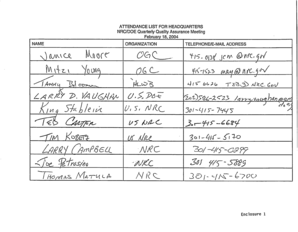 ATTENDANCE LIST FOR HEADQUARTERS
NRC/DOE Quarterly Quality Assurance Meeting
February 18, 2004
NAME ORGANIZATION TELEPHONE/E-MAIL ADDRESS
Janice Moore OGC 415- jem@nrc.gov
Mitzi Young OGC 415-1523 may@nrc.gov
Tammy 415
LARRY D. VAUGHAN U.S. DOE larry.vaughan
King Stablein U.S. NRC 301-415-7445
TED CARTER US NRC 301-415-6684
TIM KOBETZ US NRC 301-415-5130
LARRY CAMPBELL NRC 301-415-0299
Joe Petrosino NRC 301 415-5889
THOMAS MATULA NRC 301-415-6700
Enclosure 1